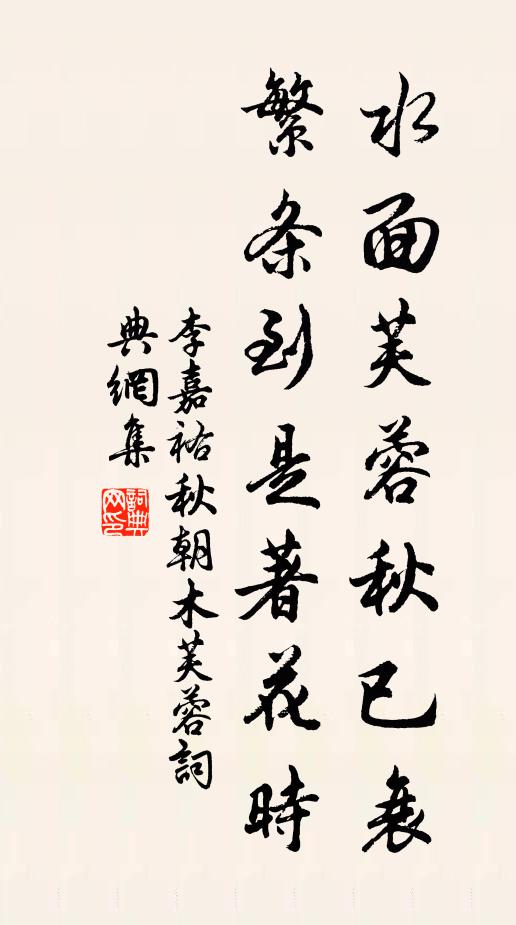 水面芙蓉秋已衰
繁条到是著花時
李嘉祐秋朝木芙蓉詞
典網集
詞典網印